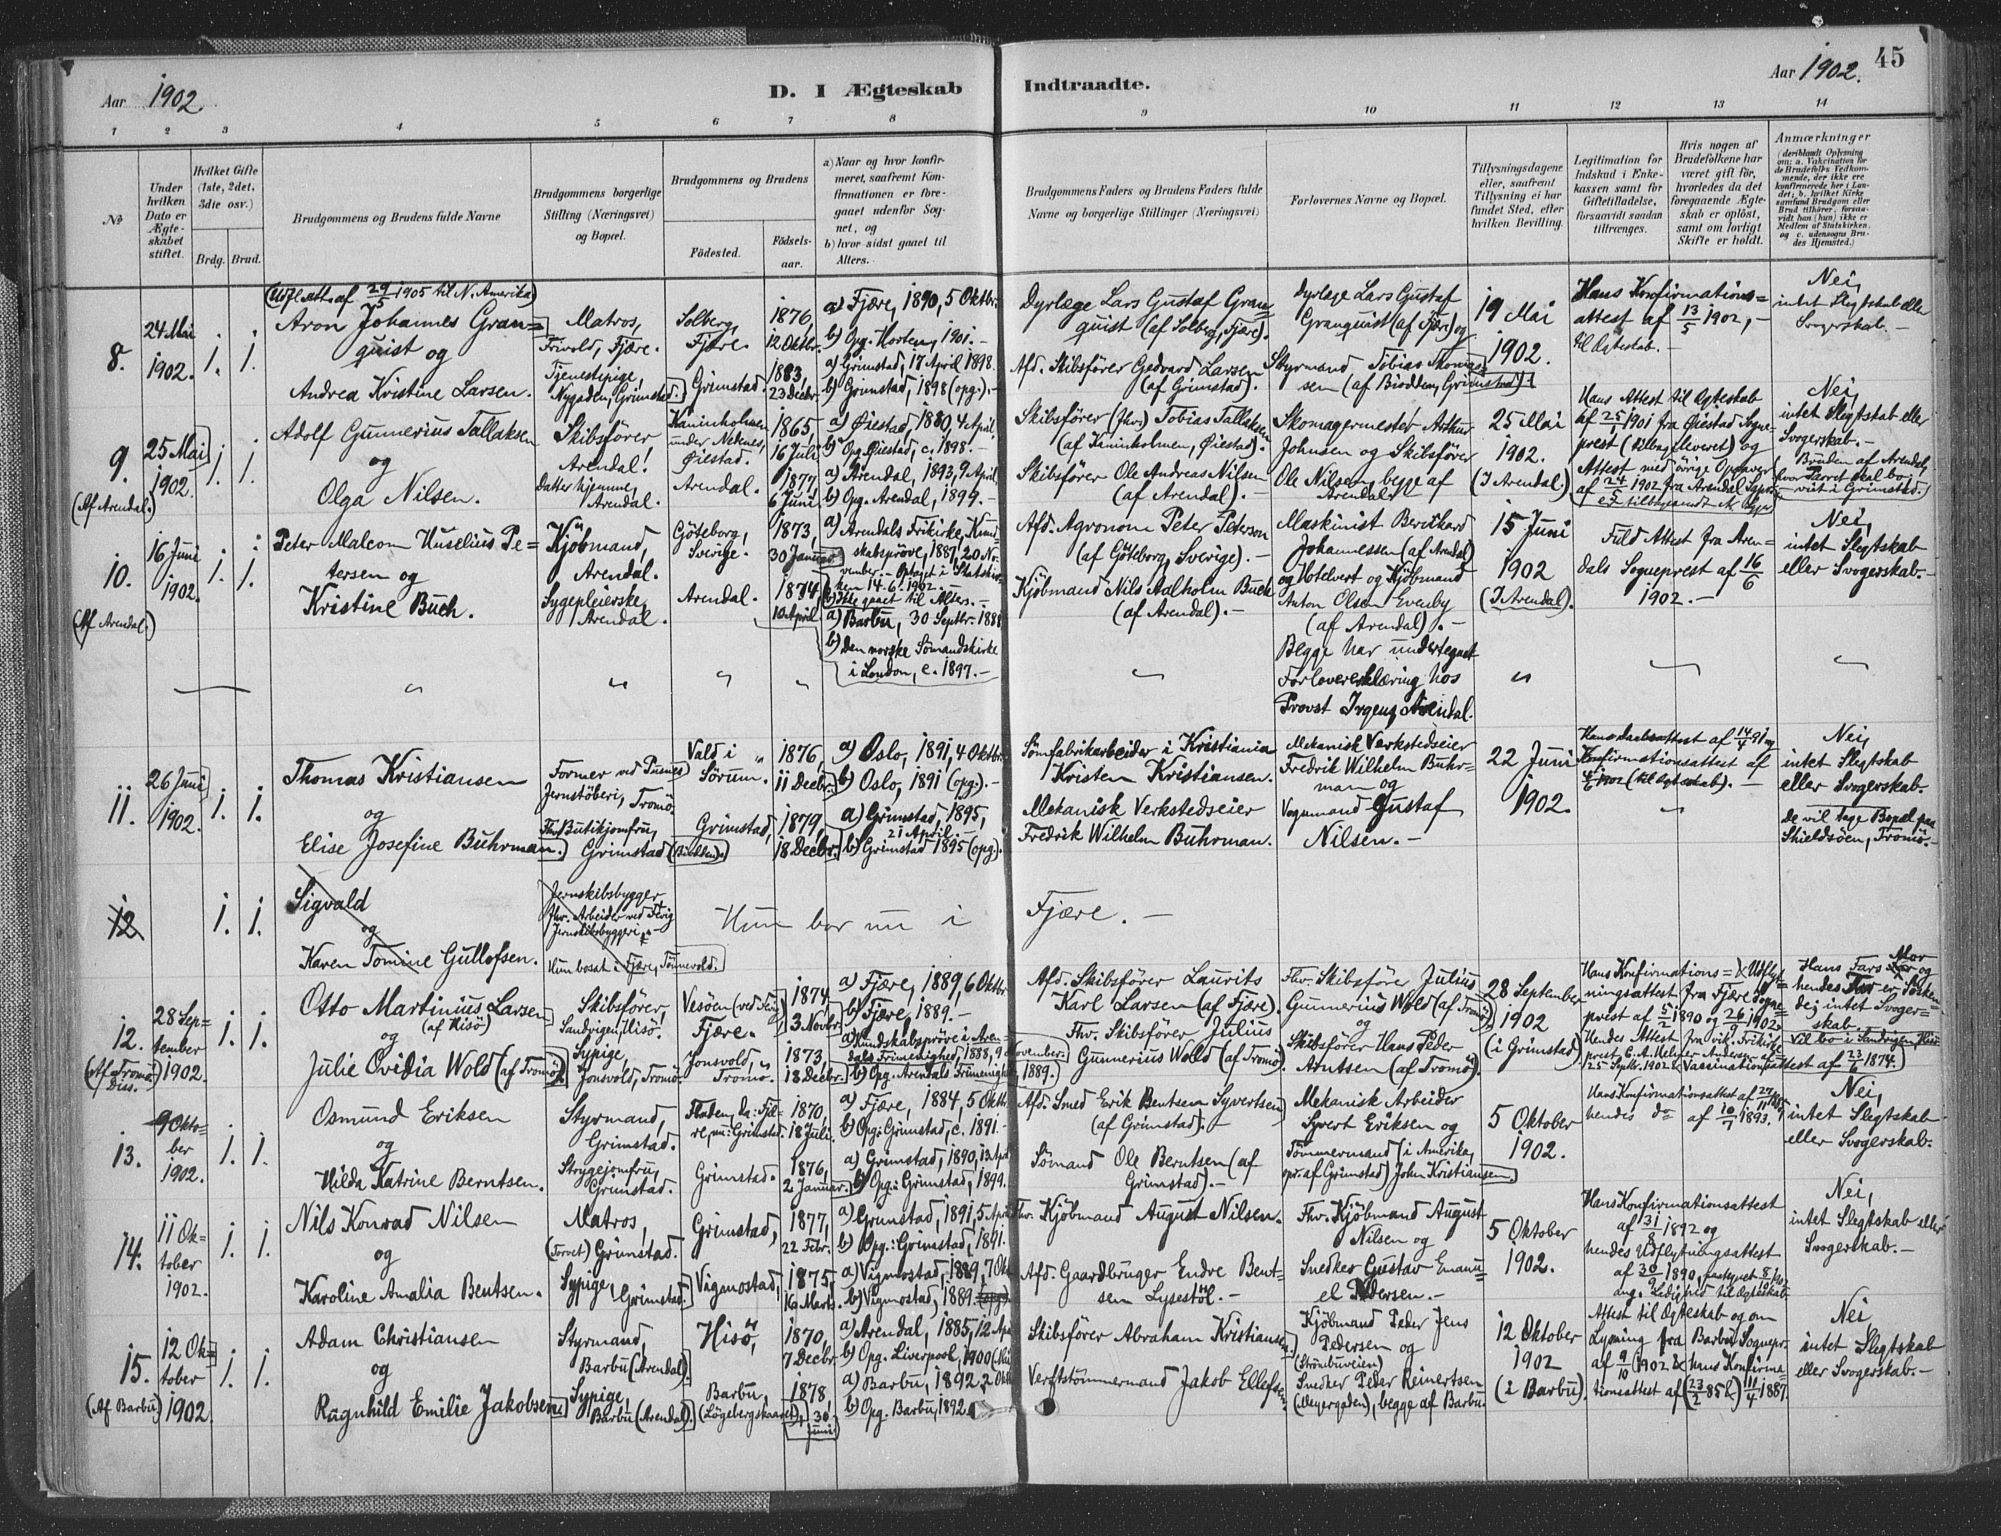 Aar 1902.
D. I Ægteskab Indtraadte.
Aar 1902. 45
1 2 3 4 5 6 7 8 9 10 11 12 13 14
No
Under hvilken Dato er Ægteskabet stiftet.
Hvilket Gifte (1ste, 2det, 3die osv.)
Brdg. Brud.
Brudgommens og Brudens fulde Navne
Brudgommens borgerlige Stilling (Næringsvei) og Bopæl.
Brudgommens og Brudens
Födested.
Födselsaar.
a) Naar og hvor konfirmeret, saafremt Konfirmationen er foregaaet udenfor Sognet, og
b) hvor sidst gaaet til Alters.
Brudgommens Faders og Brudens Faders fulde Navne og borgerlige Stillinger (Næringsvei)
Forlovernes Navne og Bopæl.
Tillysningsdagene eller, saafremt Tillysning ei har fundet Sted, efter hvilken Bevilling.
Legitimation for Indskud i Enkekassen samt for Giftetilladelse, forsaavidt saadan tiltrænges.
Hvis nogen af Brudefolkene har været gift för, hvorledes da det foregaaende Ægteskab er oplöst, samt om lovligt Skifte er holdt.
Anmærkninger
(deriblandt Oplysning om: a. Vakcination for de Brudefolks Vedkommende, der ikke ere konfirmerede her i Landet, b. hvilket Kirkesamfund Brudgom eller Brud tilhörer, forsaavidt han (hun) ikke er Medlem af Statskirken, og c. udensogns Brudes Hjemsted.)
8.
24 Mai
1902.
1. 1.
(Udfl.att. af 29/5 1905 til N. Amerika)
Aron Johannes Gran=
quist og
Andrea Kristine Larsen.
Matros,
Frivold, Fjære.
Tjenestepige,
Nygaden, Grimstad.
Solberg,
Fjære.
Grimstad.
1876,
12 Oktbr.
1883,
23 Decbr.
a) Fjære, 1890, 5 Oktbr.
b) Opg. Horten, 1901.-
a) Grimstad, 17 April 1898.
b) Grimstad, 1898 (opg.).-
Dyrlæge Lars Gustaf Gran=
quist (af Solberg, Fjære).
Afd. Skibsförer Gedvard Larsen
(af Grimstad).
Dyrlæge Lars Gustaf
Granquist (af Fjære) og
Styrmand Tobias Thomas=
sen (af Biodden, Grimstad).
19 Mai
1902.
Hans Konfirmations=
attest af 13/5 1902, -
til Ægteskab.-
Nei,
intet Slegtskab eller
Svogerskab.-
9.
(Af Arendal.)
25 Mai
1902.
1. 1.
Adolf Gunnerius Tallaksen
og
Olga Nilsen.
Skibsförer
Arendal!
Datter hjemme,
Arendal.
Kaninholmen
under Nedenes,
Øiestad.
Arendal.
1865
16 Juli
1877,
6 Juni.
a) Øiestad, 1880, 4 April.
b) Opg. Øiestad, c. 1898.-
a) Arendal, 1893, 9 April.
b) Opg. Arendal, 1899.-
Skibsförer (fhv.) Tobias Tallaksen
(af Kaninholmen, Øiestad).
Skibsförer Ole Andreas Nilsen
(af Arendal).-
Skomagermester Arthur
Johnsen og Skibsförer
Ole Nilsen, begge af
Arendal.
25 Mai
1902.
(I Arendal)
Hans Attest til Ægteskab
af 25/1 1901 fra Øiestad Sogne
prest (tilbageleveret) og
Attest med övrige Opgaver
af 24/5 1902 fra Arendal
Nei,
intet Slegtskab eller
Svogerskab.-
Bruden af Arendal,
hvor Parret skal bo
- vist i Grimstad.
10.
(Af Arendal.)
16 Juni
1902.
1. 1.
Peter Malcom Huselius Pe=
tersen og
Kristine Buch.
Kjöbmand,
Arendal.
Sygepleierske,
Arendal.
Göteborg,
Sverige.
Arendal.
1873,
30 Januar
1874
10 April
a) Arendals Frikirke, Kund=
skabspröve, 1887, 20 No=
vember.- Optaget i Statskir=
ken 14.6.1902.
b) Ikke gaaet til Alters.-
a) Barbu, 30 Septbr. 1888
b) Den norske Sömandskirke
i London, c. 1897.-
Afd. Agronom Peter Peterson
(af Göteborg, Sverige).-
Kjöbmand Nils Aalholm Buch
(af Arendal).-
Maskinist Bernhard
Johannessen (af Arendal)
og Hotelvert og Kjöbmand
Anton Olsen Evenby
(af Arendal).-
Begge har undertegnet
Forlovererklæring hos
Provst Irgens, Arendal.
15 Juni
1902
(I Arendal).
Fuld Attest fra Aren=
dals Sogneprest af 16/6
1902.-
Nei,
intet Slegtskab
eller Svogerskab.-
11.
26 Juni
1902.
1. 1.
Thomas Kristiansen
og
Elise Josefine Buhrman.
Former ved Pusnes
Jernstöberi, Tromö.
Fhv. Butikjomfru,
Grimstad
Vald i
Sörum.
Grimstad,
(Biodden.)
1876,
11 Decbr.
1879,
18 Decbr.
a) Oslo, 1891, 4 Oktbr.
b) Oslo, 1891 (opg.).-
a) Grimstad, 1895,
21 April.
b) Grimstad 1895 (opg.).-
Sömfabrikarbeider i Kristiania
Kristen Kristiansen.
Mekanisk Verkstedseier
Fredrik Wilhelm Buhrman.
Mekanisk Verkstedseier
Fredrik Wilhelm Buhr=
man og
Vognmand Gustaf
Nilsen.-
22 Juni
1902.
Hans daabsattest af 14/4 91 og
Konfirmationsattest af
1902 (til Ægteskab).-
Nei,
intet Slegtskab
eller Svogerskab.
De vil tage Bopæl paa
Skieldsöen, Tromö.-
12
1. 1.
Sigvald
og
Karen Tomine Gullofsen.
Jernskibsbygger
fhv. Arbeider ved Fevig
Jernskibsbyggeri.-
Hun bosat i Fjære, Tönnevold.
Hun bor nu i Fjære.-
12.
(Af Tromö
Diss.)
28 Sep=
tember
1902.
1. 1.
Otto Martinius Larsen
(af Hisö)
og
Julie Ovidia Wold (af Tromö)
Skibsförer,
Sandvigen, Hisö.
Sypige,
Jonsvold, Tromö.
Vesöen (ved Fevig)
Fjære.
Jonsvold,
Tromö.
1874
3 Novbr.
1873,
18 Decbr.
a) Fjære, 1889, 6 Oktbr
b) Fjære, 1889.-
a) Kundskabspröve i Aren=
dals Frimenighed, 1888, 9 de
November
1889.
b) Opg. Arendals Frimenighed
Afd. Skibsförer Laurits
Karl Larsen (af Fjære).
Fhv. Skibsförer Julius
Gunnerius Wold (af Tromö)
Fhv. Skibsförer Julius
Gunnerius Wold (af Tromö)
og
Skibsförer Hans Peder
Arntsen (af Tromö).
28 September
1902
(i Grimstad)
Hans Konfirmations= & Udflyt=
ningsattest fra Fjære Sogne=
prest af 5/2 1890 og 26/9 1902.
Hendes Attest fra
25 Septbr. 1902 & Vaccinationsattest af 23/6 1874.
Hans Fars Mor og
hendes Far er Sösken=
de; intet Svoger=
skab.
Vil bo i Sandvigen, Hisö
13.
9 Okto=
ber
1902.
1. 1.
Osmund Eriksen
og
Hilda Katrine Berntsen.
Styrmand,
Grimstad.
Strygejomfru,
Grimstad.
da: Fjæ=
re, nu: Grimstad.
Grimstad.
1870,
18 Juli.
1876,
2 Januar.
a) Fjære, 1884, 5 Oktbr
b) Opg: Grimstad, c. 1891.-
a) Grimstad, 1890, 13 April
b) Opg: Grimstad, 1899.
Afd. Smed Erik Bentsen Syvertsen
(af Grimstad).-
Sömand Ole Berntsen (af
Grimstad).-
Mekanisk Arbeider
Syvert Eriksen og
Tömmermand (i Amerika,
opr. af Grimstad) John Kristiansen
5 Oktober
1902.
Hans Konfirmationsattest af
hendes do af 10/7 1893.
Nei,
intet Slegtskab
eller Svogerskab.
14.
11 Ok=
tober
1902.
1. 1.
Nils Konrad Nilsen
og
Karoline Amalia Bentsen.
Matros,
(Torvet) Grimstad.
Sypige,
Grimstad.
Grimstad,
Vigmostad,
1877,
22 Febr.
1875,
16 Marts.
a) Grimstad, 1891, 5 April
b) Opg.: Grimstad, 1891.
a) Vigmostad, 1889, 7 Okt
b) Vigmostad, 1889.
Fhv. Kjöbmand August Nilsen.
Afd. Gaardbruger Endre Bent=
sen Lysestöl.-
Fhv. Kjöbmand August
Nilsen og
Snedker Gustav Emanu=
el Pedersen.-
5 Oktober
1902.
Hans Konfirmationsattest
af 31/8 1892 og
hendes Udflytningsattest
af 30/9 1890, paategnet
ang. Ledighed til Ægteskab
Nei,
intet Slegtskab eller
Svogerskab.-
15.
(Af Barbu)
12 Ok=
tober
1902.
1. 1.
Adam Christiansen
og
Ragnhild Emilie Jakobsen
Styrmand,
Barbu (Arendal).
Sypige,
Barbu (Arendal).
Hisö,
Barbu,
1870,
7 Decbr.
1878,
30
Juni.
a) Arendal, 1885, 12 Apr
b) Opg. Liverpool, 1900
a) Barbu, 1892, 2 Okt
b) Opg. Barbu, 1892.
Skibsförer Abraham Kristiansen.
Verftstömmermand Jakob Ellefsen.
Kjöbmand Peder Jens
Pedersen og
(Strömbuveien)
Snedker Peder Reinertsen
(Meyergaden), begge af Barbu.
12 Oktober
1902
(i Barbu).
Attest til Ægteskab og om
Lysning fra Barbu Sognepr.
af 9/10 1902 & hans Konfirma=
tionsattest af (23/2 85 &) 11/4 1887.
Nei
intet Slegtskab
eller Svogerskab.-